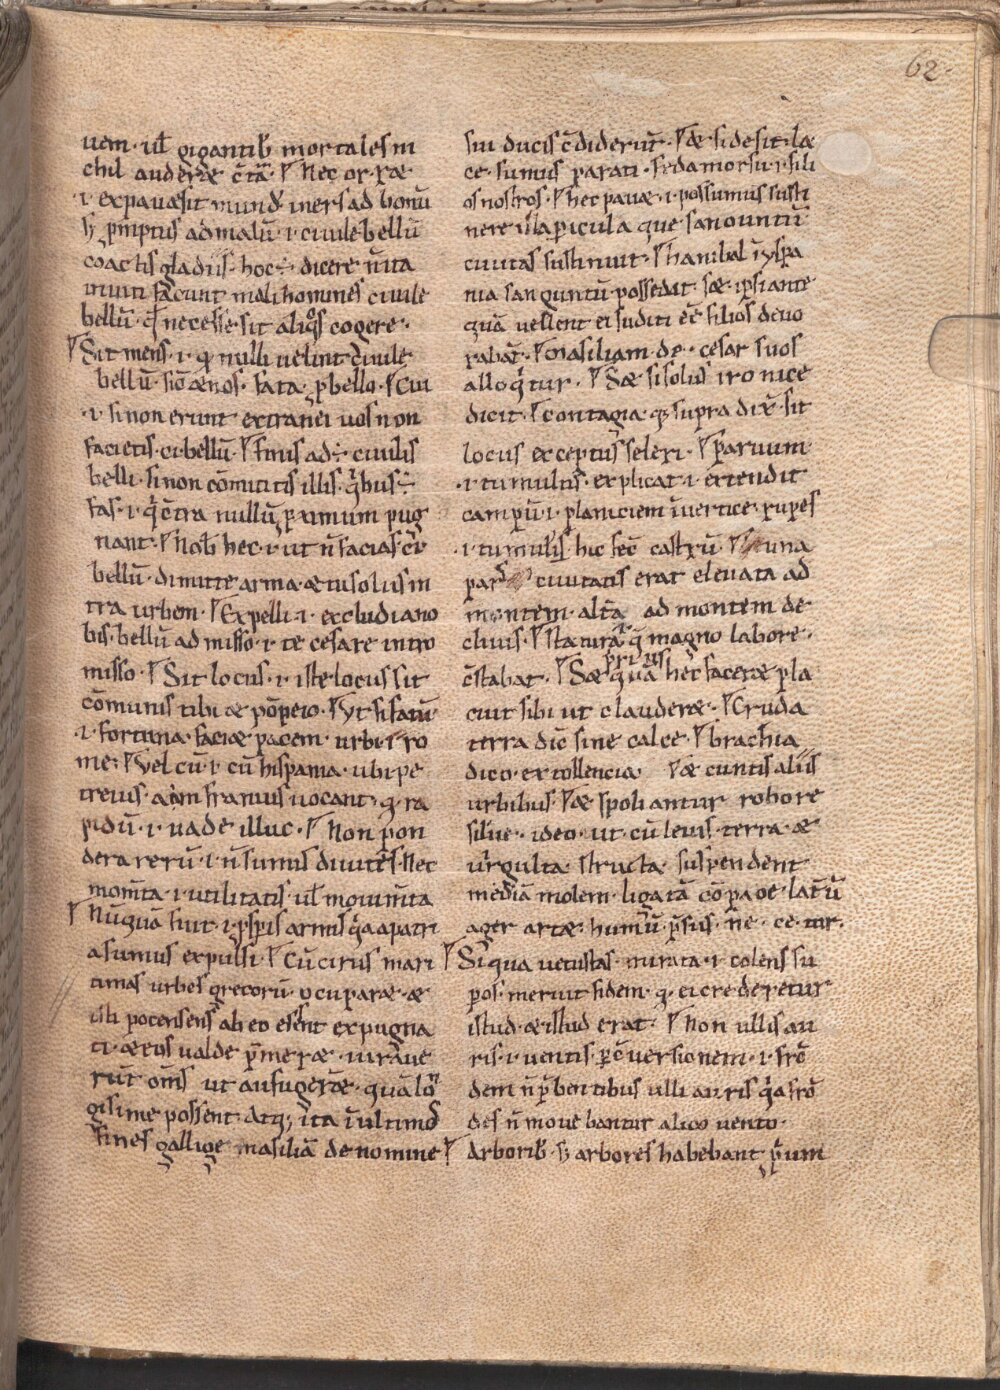 62.
uem. ul gigantib mortales ni
chil auderæ c̄ta. Nec or. ræ
.i. expauæsit mund' iners ad bonū
s; p̄mptus ad malū .i. ciuile bellū
coactis gladiis. hoc ÷ dicere n̄ ita
inuiti faciunt mali homines ciuile
bellū. q̄ necesse sit aliq̄s cogere.
Sit mens .i. qđ nulli uelint ciuile
bellū. sic̄ æ nos. fata. p bello. Cui
.i. si non erunt extranei uos non
facietis. ci. bellū. finis ad ÷ ciuilis
belli. si non cōmitūtis illis. q̄bus ÷
fas .i. q̄ c̄tra nullū p̱ximum pug
nant. Nob hec .i. ut n̄ facias ci
bellū. dimitte arma. æ tu solus in
tra urbem. Expelli .i. excludi a no
bis. bellū admisso .i. te cesare intro
misso. Sit locus .i. iste locus sit
cōmunis tibi æ pōpeio. Vt si fatū
.i. fortuna. faciæ pacem. urbi .i. ro
me. Vel cū .i. cū hispania. ubi pe
treius. afranius uocant. q. ra
pidū .i. uade illuc. Non pon
dera rerū .i. n̄ sumus diuites. Nec
momta .i. utilitatis. ul mouimta
Nūquā fuit .i. pspis armis q̄a a patri
a sumus expulsi. Cū cirus mari
timas urbes grecorū. ocuparæ. æ
ibi pocensens ab eo essent expugna
ti. æ eos ualde p̄meræ. iuraue
rūt om̄s ut aufugeræ. quā lō
gisime possent. Atq; ita ī ultimos
fines gallige masiliā de nomine
sui ducis c̄diderūt. æ. si desit. la
ce. sumus parati. Feda morsu .i. fili
os nostros. hec pauæ .i. possumus susti
nere illa picula que saguntū
ciuitas sustinuit. hanibal ī yspa
nia saguntū possedit. sæ ipsi ante
quā uellent ei suditi eē filios deuo
rabāt. masiliam. de. cesar suos
alloq̄tur. Sæ si solus ironice
dicit. contagia. q; supra dix̄. sit
locus exceptus sceleri. paruum.
.i. tumultus. explicat .i. extendit
campū .i. planiciem ī uertice. rupes
.i. tumulis. hic fec̄ castrū. una
pars ciuitatis erat eleuata ad
montem. alta ad montem de
cliuis. statura q̄ magno labore.
c̄stabat. Sæ prius quā hec faceræ pla
cuit sibi ut clauderæ. Cruda
terra dic̄ sine calce. brachia
dico. extollencia. æ cuntis aliis
urbibus. æ spoliantur robore
silue. ideo. ut cū leuis. terra. æ
uirgulta. structa. suspendent
mediā molem. ligatā cō paoe. latūū
ager artæ. humū p̄sus. ne. ce. tur.
Siqua uetustas. mirata .i. colens su
pos. meruit fidem. q. ei crederetur
istud. æ istud erat. Non ullis au
ris .i. uentis. p̱c̄ uersionem .i. frō
dem n̄ p̄bentibus ulli auris q̄a frō
des n̄ mouebantur aliquo uento.
Arborib. s; arbores habebant p̄rium